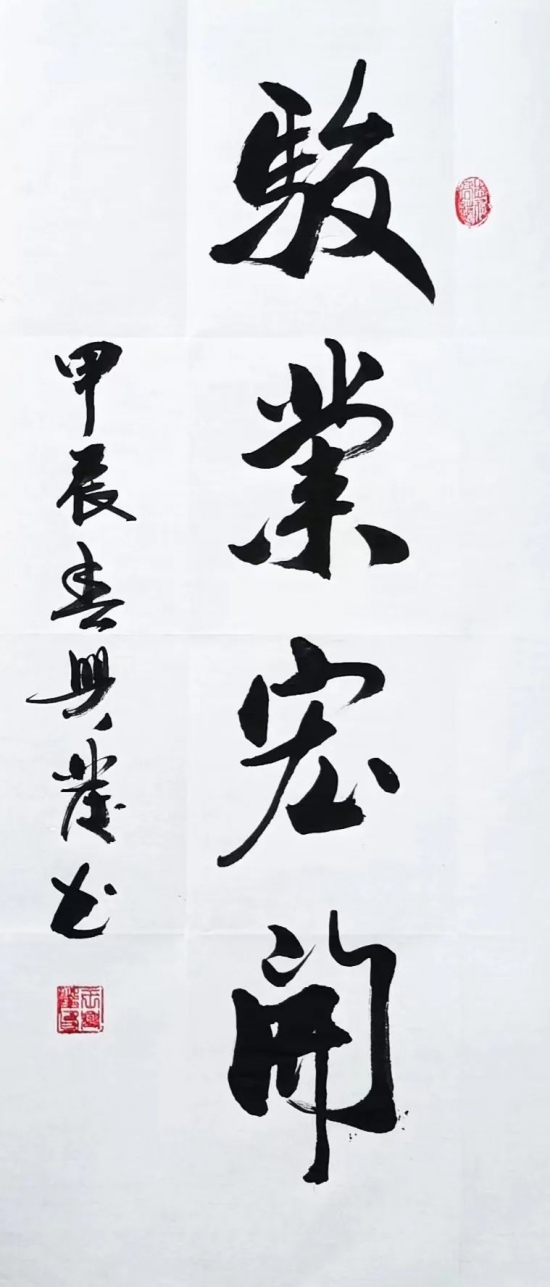 駿業宏開
甲辰春興
書